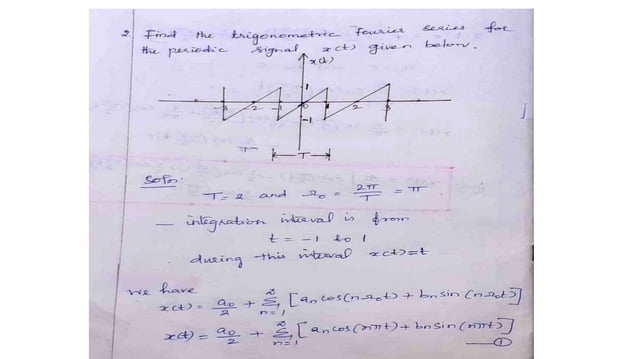 2. Find the trigonometric Fourier series for
the periodic signal x(t) given below.
x(t)
1
-3 -2 -1 0 1 2 3
-1
T
Soln.
T = 2 and Ω0 = 2π/T = π.
— integration interval is from
t = -1 to 1
during this interval x(t) = t
We have
x(t) = a0/2 + Σ n=1 ∞ [an cos(nΩ0t) + bn sin(nΩ0t)]
x(t) = a0/2 + Σ n=1 ∞ [an cos(nπt) + bn sin(nπt)]
— 1